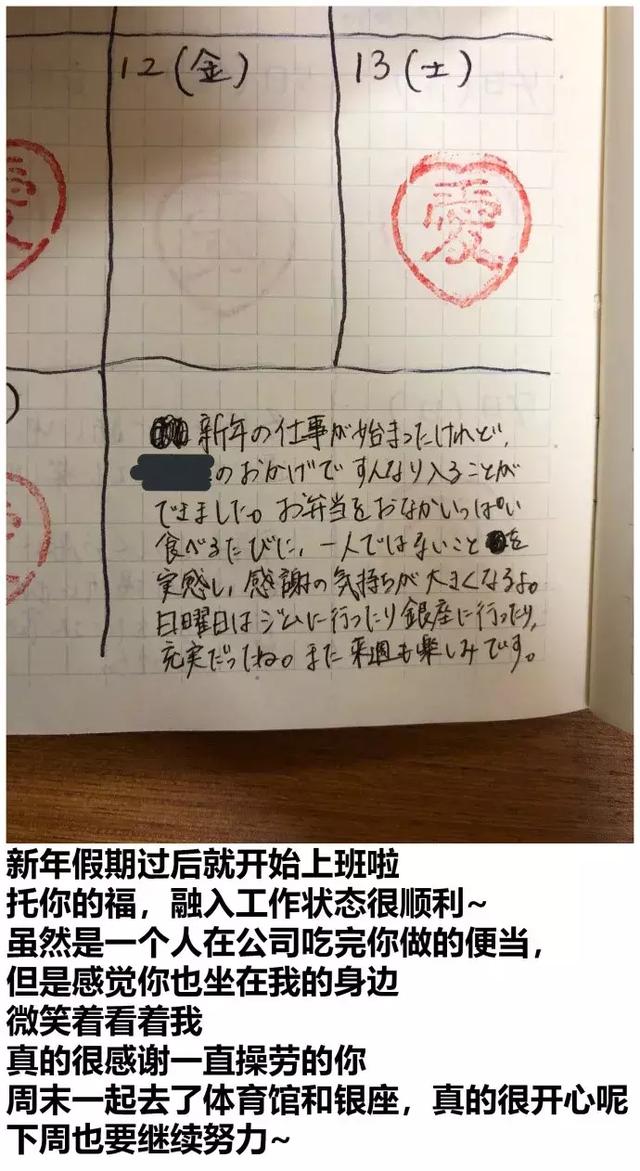 12(金)
13(土)
愛
新年の仕事が始まったけれど、
のおかげですんなり入ることが
できました。お弁当をおなかいっぱい
食べるたびに、一人ではないこと を
実感し、感謝の気持ちが大きくなるよ。
日曜日はジムに行ったり銀座に行ったり、
充実だったね。また来週も楽しみです。
新年假期过后就开始上班啦
托你的福，融入工作状态很顺利~
虽然是一个人在公司吃完你做的便当，
但是感觉你也坐在我的身边
微笑着看着我
真的很感谢一直操劳的你
周末一起去了体育馆和银座，真的很开心呢
下周也要继续努力~